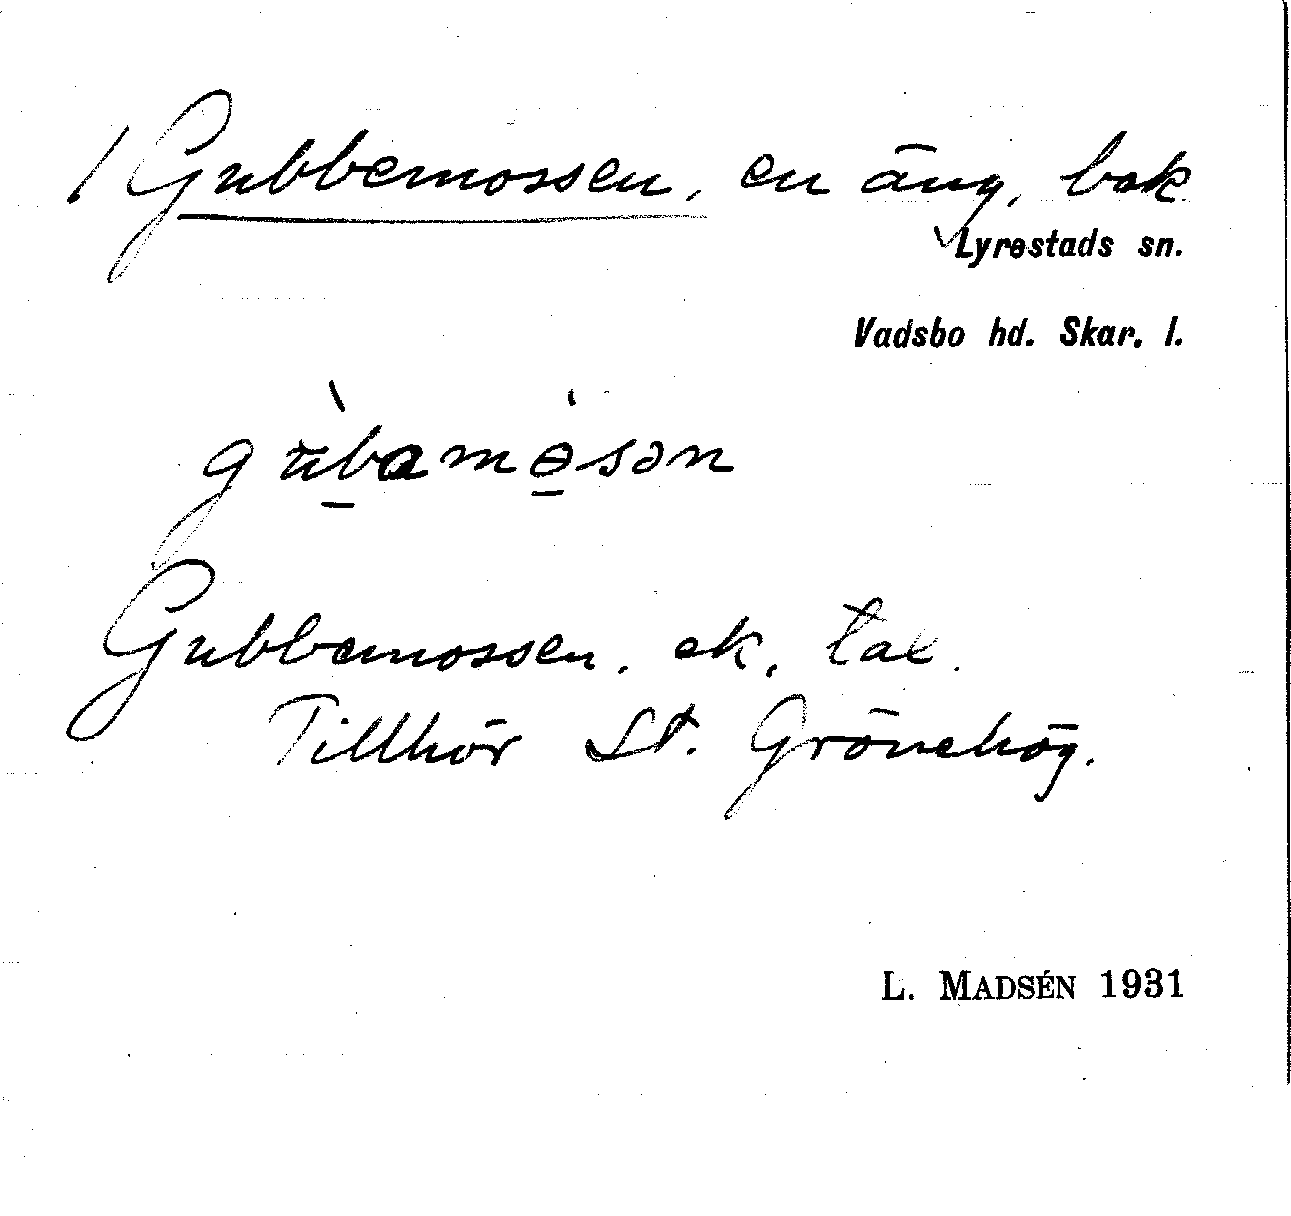 / Gubbemossen, en äng, bok
Lyrestads sn.
Vadsbo hd. Skar. l.
gubamɵsən
Gubbemossen. ek, tal.
Tillhör St. Grönehög.
L. MADSÉN 1931